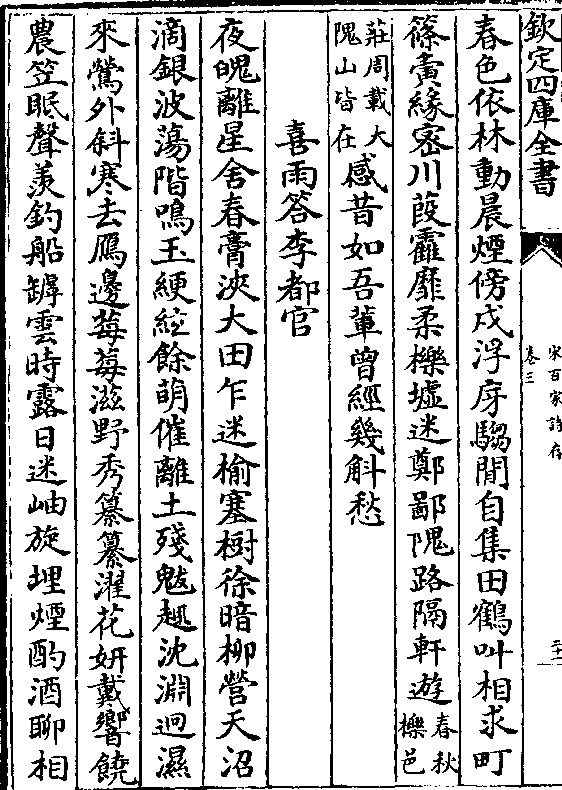 欽定四庫全書
宋百家詩存
卷三
二十一
春色依林動晨煙傍戍浮房騶閒自集田鶴叫相求町
篠夤緣密川葭靃靡柔櫟墟迷鄭鄙隗路隔軒遊春秋櫟邑
莊周載大隗山皆在感昔如吾輩曾經幾斛愁
喜雨答李都官
夜魄離星舍春膏浹大田乍迷榆塞樹徐暗柳營天沼
滴銀波蕩階鳴玉綆絃餘萌催離土殘魃趣沈淵迥濕
來鶯外斜寒去鴈邊莓莓滋野秀纂纂濯花妍戴響饒
農笠眠聲羨釣船罅雲時露日迷岫旋埋煙酌酒聊相